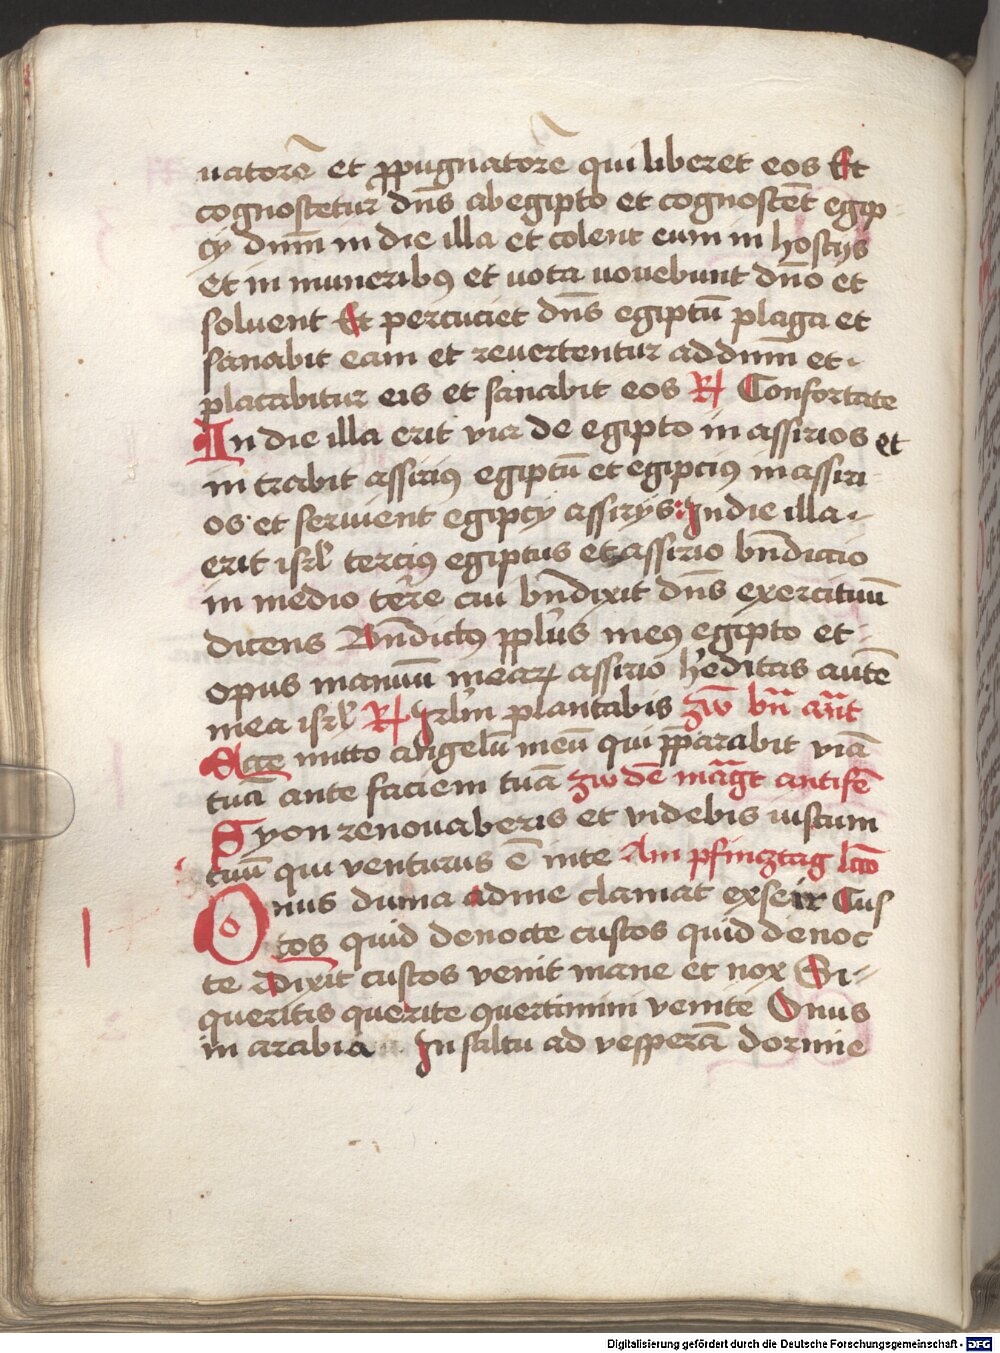 uatorē et ꝓpugnatorē qui liberet eos Et
cognoscetur dn̄s ab egipto et cognoscēt egip-
cÿ dnm̄ in die illa et colent eum in hostÿs
et in munerib9 et uota uouebunt dn̄o et
soluent Et percuciet dn̄s egiptū plaga et
sanabit eam et reuertentur ad dnm̄ et
placabitur eis et sanabit eos R Confortate
In die illa erit via de egipto in assirios et
intrabit assiri9 egiptū et egipci9 in assiri
os et seruient egipcÿ assirÿs: In die illa
erit isrl terci9 egiptus et assirio bn̄dictio
in medio terre cui bn̄dixit dn̄s exercituū
dicens Bn̄dict9 ppl̄us me9 egipto et
opus manuū meaꝝ assirio h̓editas autē
mea isrl R Jrl̄m plantabis zw bn̄ ant
Ecce mitto angelū meū qui p̄parabit viā
tuā ante faciem tuā zw dē mag̅t antifē
Syon renouaberis et videbis iustum
tuū qui venturus ē in te Am pfincztag lcō
Onus duma ad me clamat ex seir Cus
tos quid de nocte custos quid de noc
te Dixit custos venit mane et nox Si-
queritis querite 9uertimini venite Onus
in arabia In saltu ad vesperā dormie
Digitalisierung gefördert durch die Deutsche Forschungsgemeinschaft - DFG